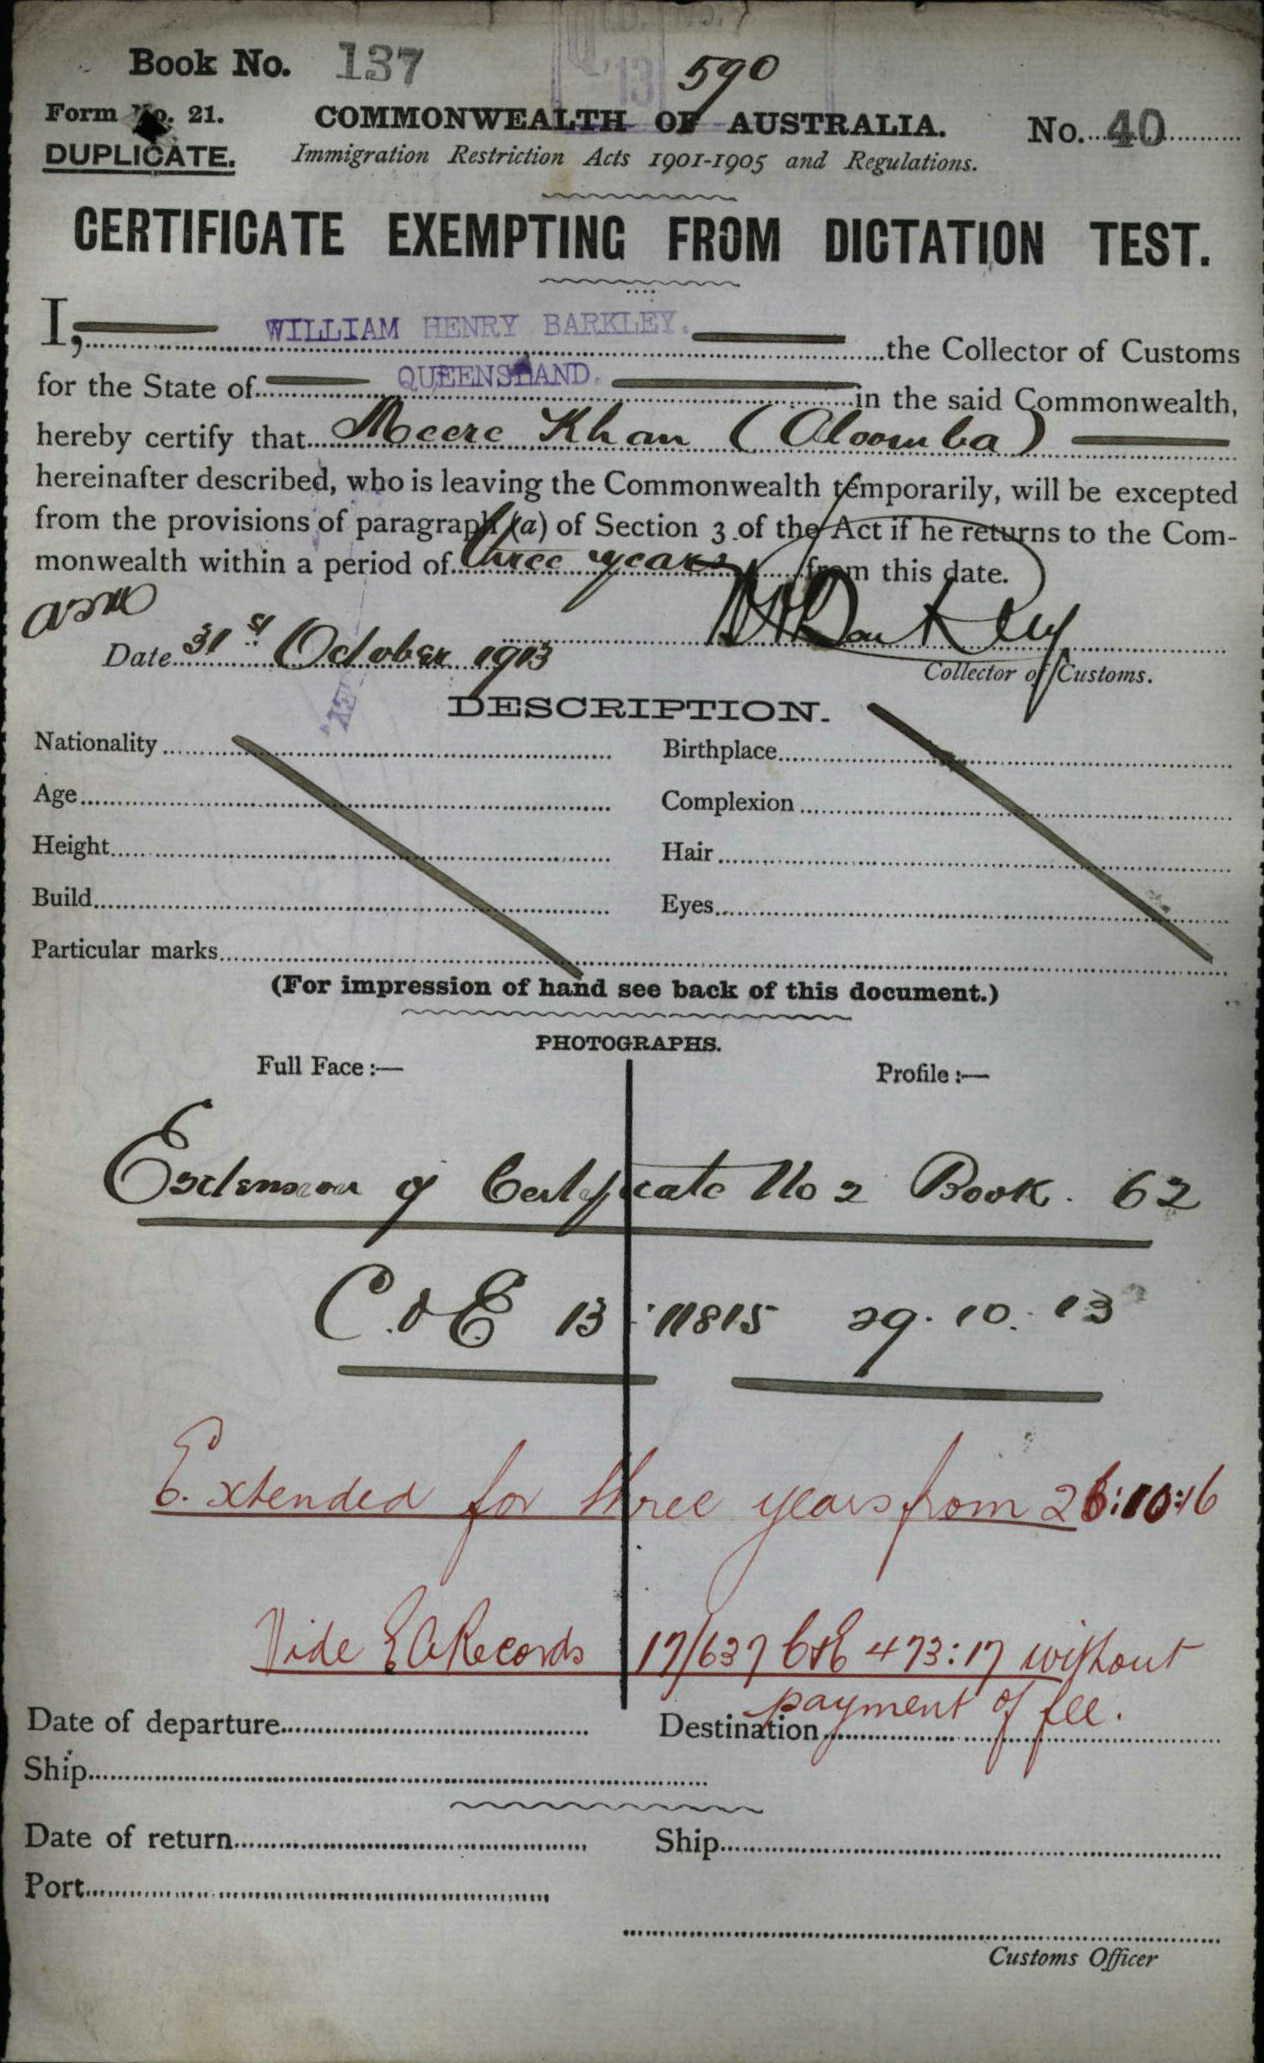 Book No. 137
590
Form No. 21.
COMMONWEALTH OF AUSTRALIA.
No. 40
DUPLICATE.
Immigration Restriction Acts 1901-1905 and Regulations.
CERTIFICATE EXEMPTING FROM DICTATION TEST.
I, WILLIAM HENRY BARKLEY. the Collector of Customs
for the State of QUEENSLAND. in the said Commonwealth,
hereby certify that Meere Khan (Aloomba)
hereinafter described, who is leaving the Commonwealth temporarily, will be excepted
from the provisions of paragraph (a) of Section 3 of the Act if he returns to the Com-
monwealth within a period of three years from this date.
WHBarkley
Date 31st October 1913
Collector of Customs.
DESCRIPTION.
Nationality
Birthplace
Age
Complexion
Height
Hair
Build
Eyes
Particular marks
(For impression of hand see back of this document.)
PHOTOGRAPHS.
Full Face :—
Profile :—
Extension of Certificate No 2 Book. 62
C. & E 13 : 11815 29. 10. 13
Extended for three years from 26:10:16
Vide EA Records 17/637 C&E 473:17 without
payment of fee.
Date of departure
Destination
Ship
Date of return
Ship
Port
Customs Officer